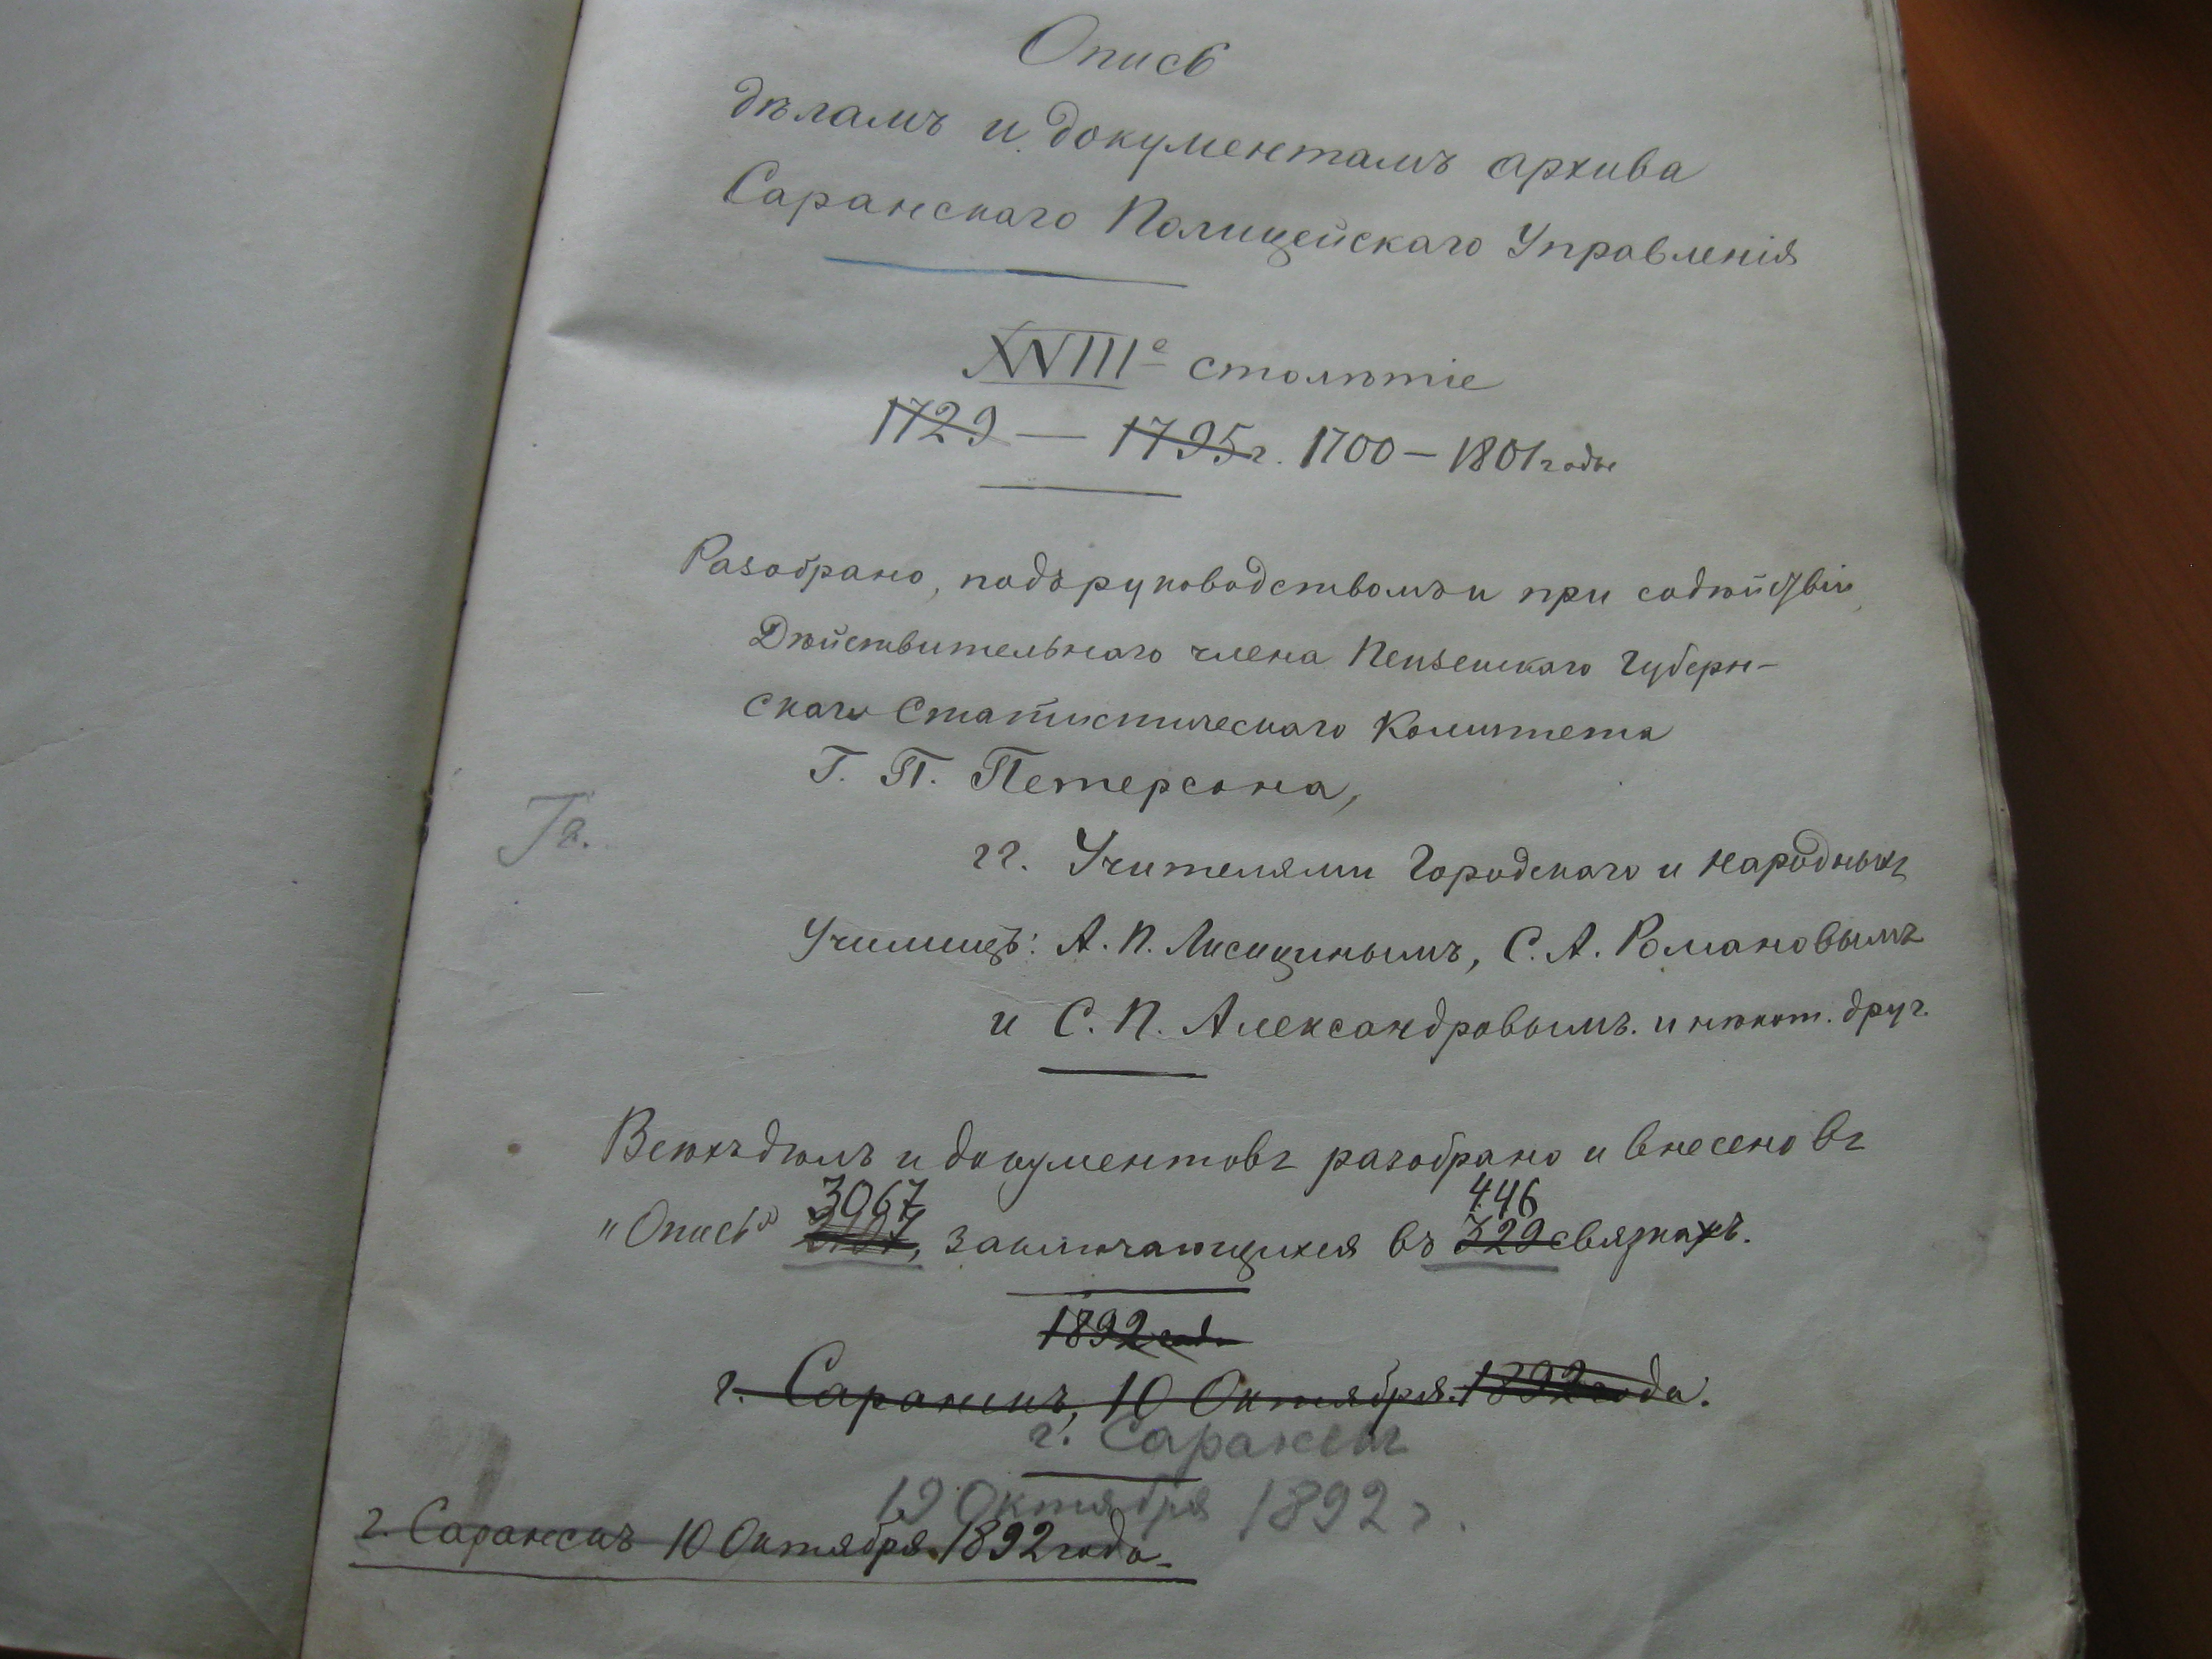 Опись
дѣламъ и документамъ архива
Саранскаго Полицейскаго Управленія
XVIIIе столѣтіе
1729 — 1795г. 1700 — 1801 годы
Разобрано, подъ руководствомъ и при содѣйствіи
Дѣйствительнаго члена Пензенскаго Губерн-
скаго Статистическаго Комитета
Г. П. Петерсона,
гг. Учителями Городскаго и народныхъ
Училищъ: А. П. Лисицинымъ, С. А. Романовымъ
и С. П. Александровымъ. и нѣкот. друг.
Всѣхъ дѣлъ и документовъ разобрано и внесено въ
3067 446
"Опись" заключающихся въ 329 связкахъ.
1892 года
г. Саранскъ, 10 Октября 1892 года.
г. Саранскъ
19 Октября 1892 г.
г. Саранскъ 10 Октября 1892 года